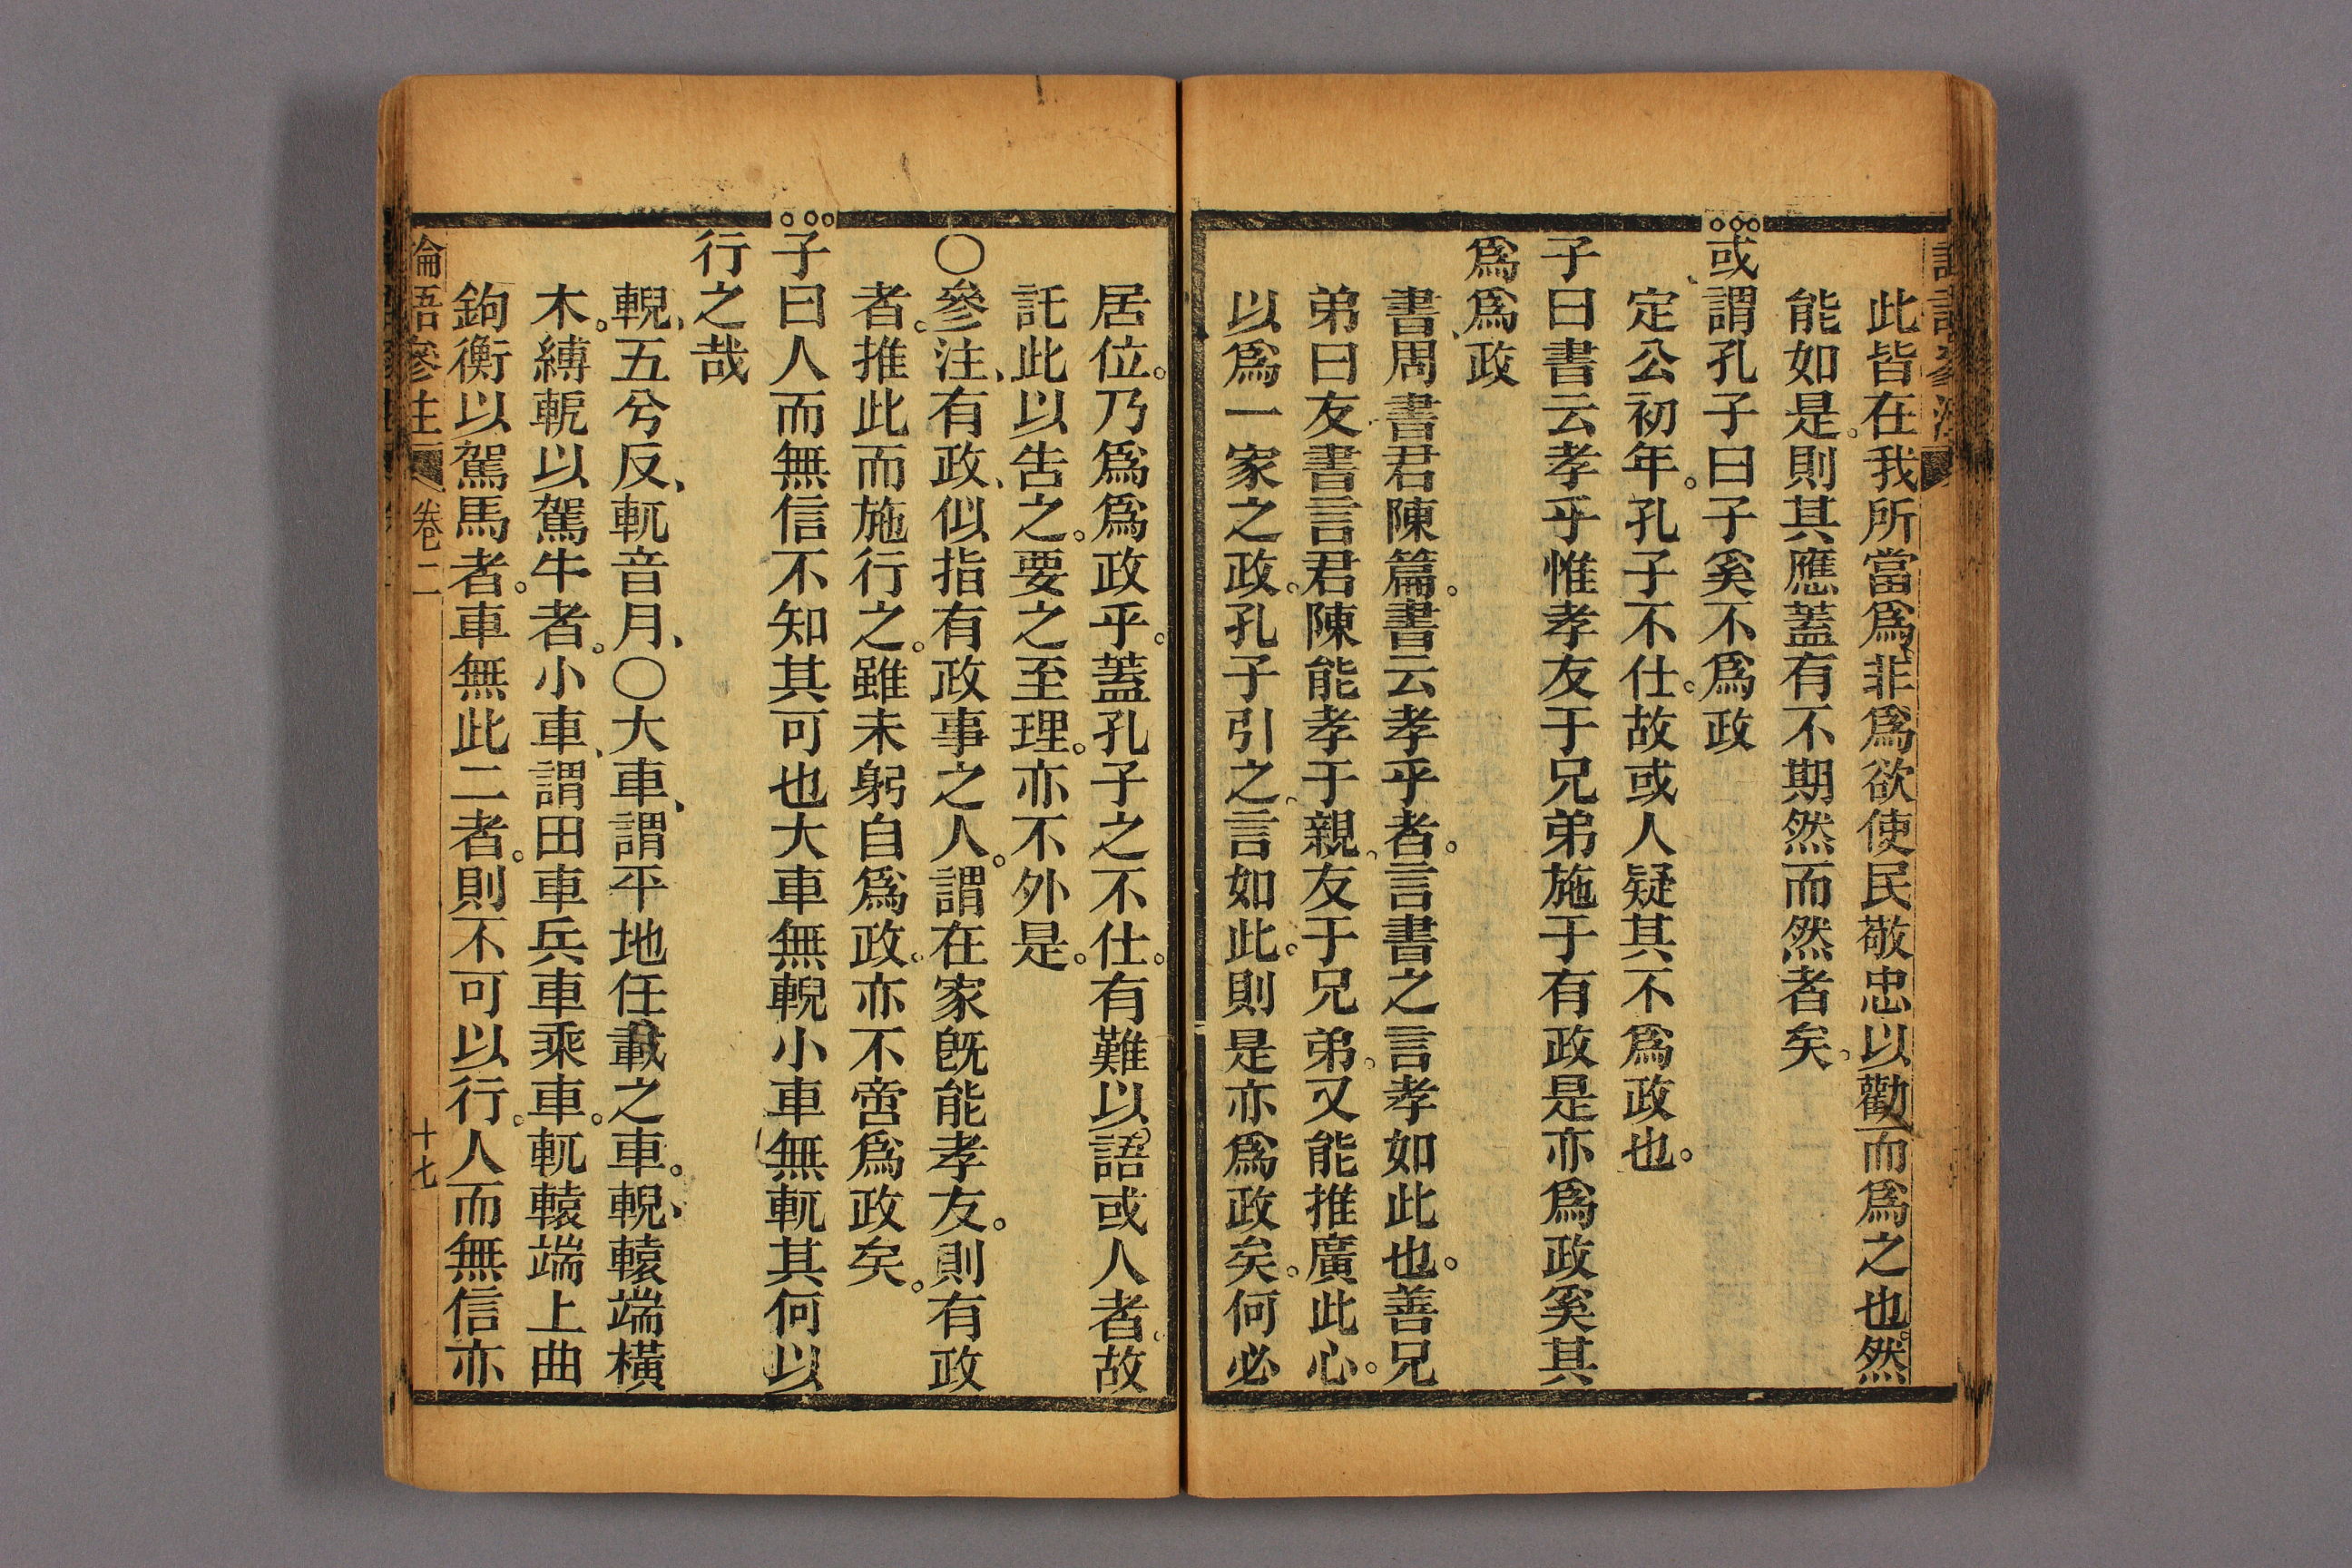 此皆在我所當爲非爲欲使民敬忠以勸而爲之也。然
能如是。則其應蓋有不期然而然者矣。
或謂孔子曰子奚不爲政
定公初年。孔子不仕。故或人疑其不爲政也。
子曰書云孝乎惟孝友于兄弟施于有政是亦爲政奚其
爲爲政
書、周書君陳篇。書云孝乎者。言書之言孝如此也。善兄
弟曰友書言君陳能孝于親、友于兄弟。又能推廣此心。
以爲一家之政。孔子引之、言如此。則是亦爲政矣。何必
居位。乃爲爲政乎。蓋孔子之不仕。有難以語或人者。故
託此以告之。要之至理。亦不外是。
〇參注、有政、似指有政事之人。謂在家旣能孝友。則有政
者。推此而施行之。雖未躬自爲政。亦不啻爲政矣。
子曰人而無信不知其可也大車無輗小車無軏其何以
行之哉
輗、五兮反、軏音月、〇大車、謂平地任載之車。輗、轅端橫
木。縛軛以駕牛者。小車、謂田車兵車乘車。軏轅端上曲
鉤衡以駕馬者。車無此二者。則不可以行。人而無信亦
論語參注 卷二 十七